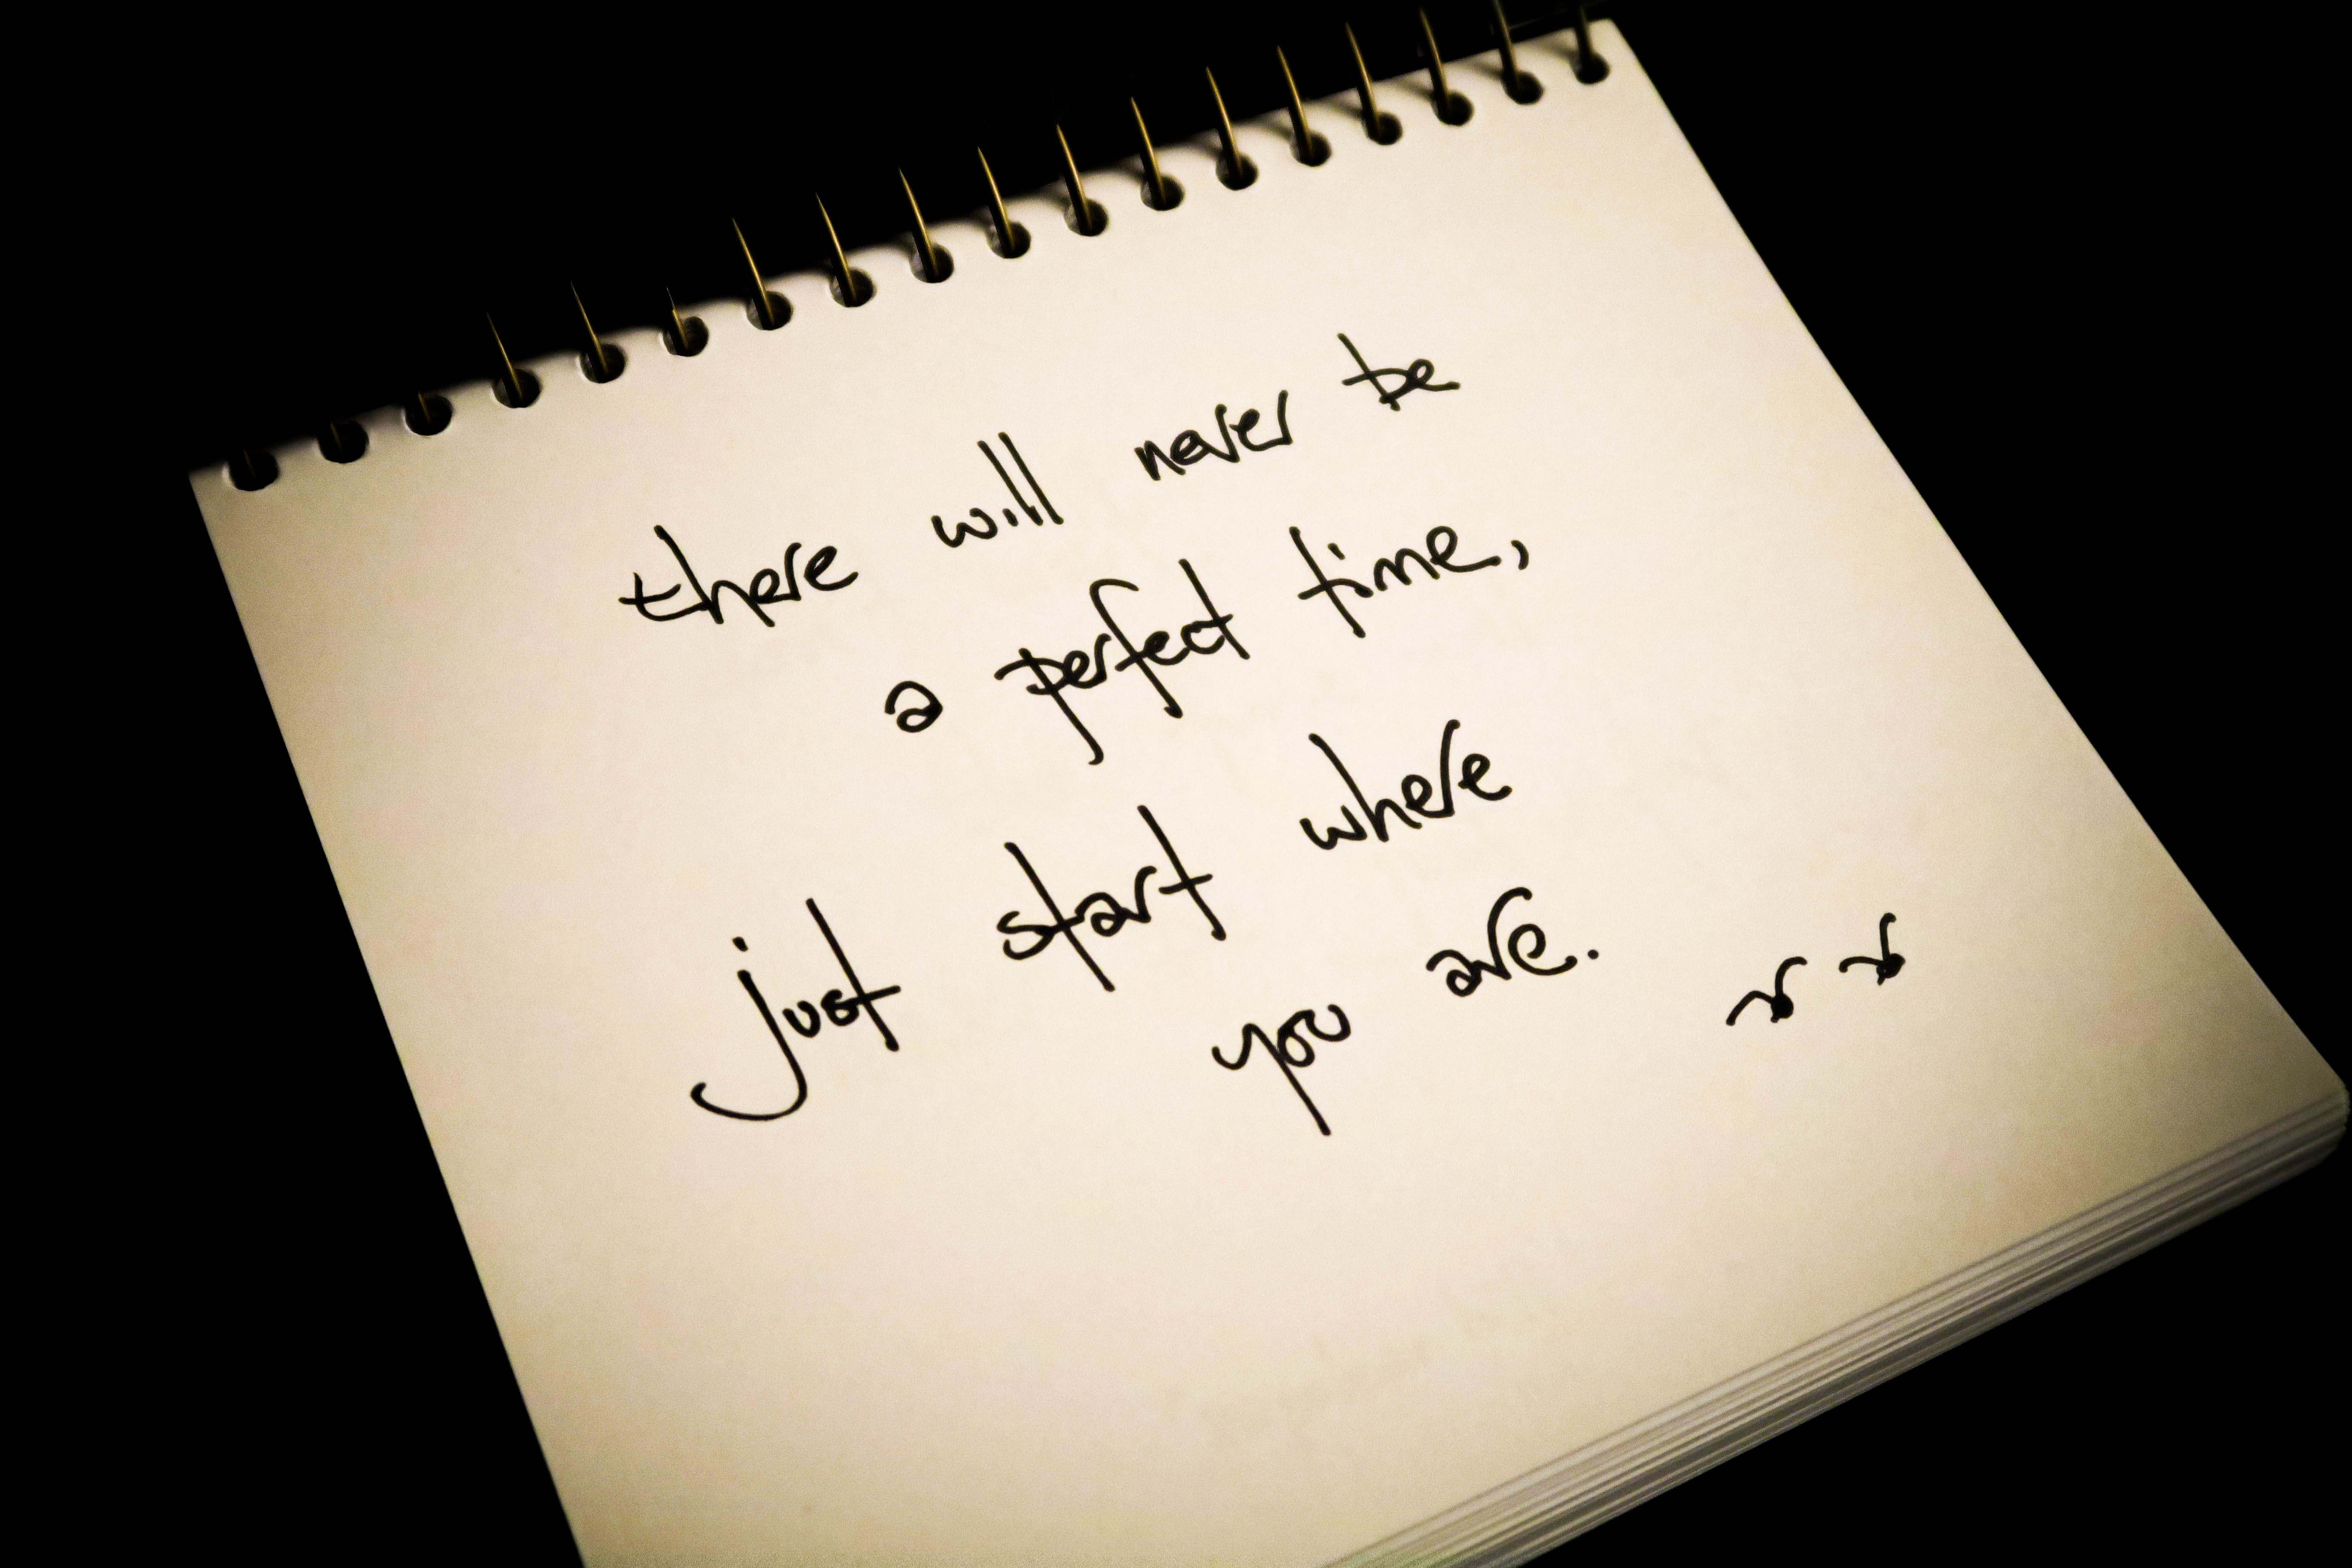 there will never be
a perfect time,
just start where
you are.